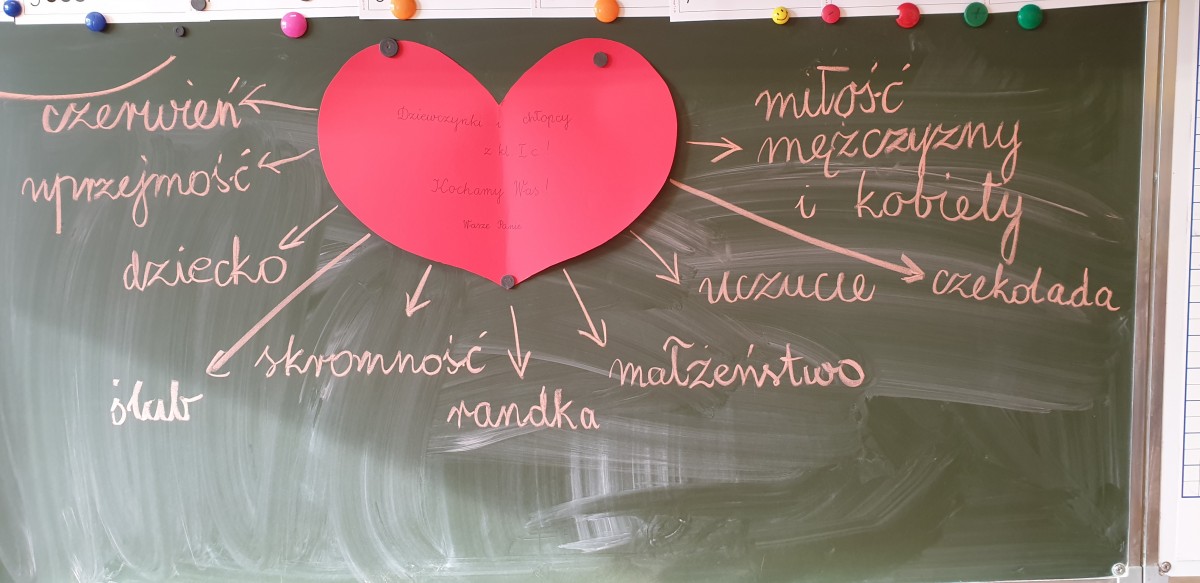 Dziewczynki i chłopcy
z kl. Ic!
Kochamy Was!
Wasze Panie
czerwień
uprzejmość
dziecko
ślub
skromność
randka
małżeństwo
uczucie
czekolada
miłość
mężczyzny
i kobiety